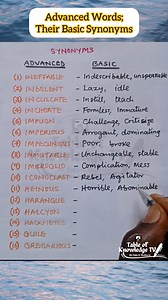 Advanced Words;
Their Basic Synonyms
SYNONYMS
ADVANCED BASIC
(1) INEFFABLE - Indescribable, unspeakable
(2) INDOLENT - Lazy, idle
(3) INCULCATE - Instill, teach
(4) INCHOATE - Formless, Immature
(5) IMPUGN - Challenge, Criticize
(6) IMPERIOUS - Arrogant, dominating
(7) IMPECUNIOUS - Poor, broke
(8) IMMUTABLE - Unchangeable, stable
(9) IMBROGLIO - Complication, Mess
(10) ICONOCLAST - Rebel, Agitator
(11) HEINOUS - Horrible, Abominable
(12) HARANGUE -
(13) HALCYON -
(14) HACKNEYED -
(15) GUILE -
(16) GREGARIOUS -
Table of
Knowledge TV